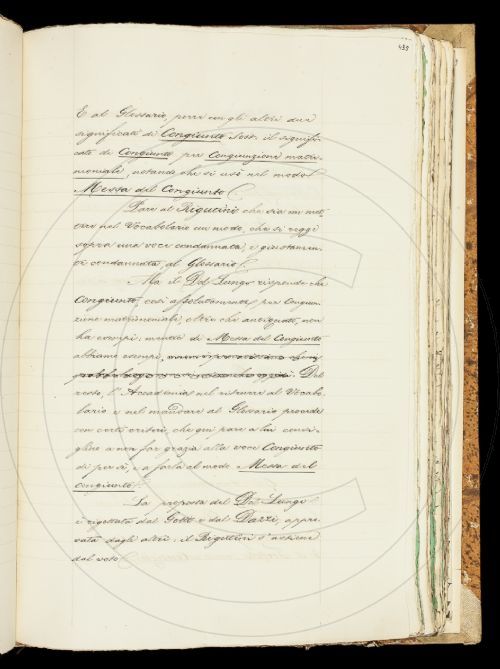 439
E al Glossario, porre con gli altri due
significati di Congiunto Sost. il signifi-
cato di Congiunto per Congiunzione matri-
moniale, notando che si usò nel modo
Messa del Congiunto.
Pare al Rigutini che sia un met-
tere nel Vocabolario un modo, che si regge
sopra una voce condannata, e giustamen-
te condannata, al Glossario.
Ma il Del Lungo risponde che
Congiunto, così assolutamente per Congiun-
zione matrimoniale, oltre che antiquato, non
ha esempi, mentre di Messa del Congiunto
abbiamo esempi. Del
resto l'Accademia nel ritenere al Vocabo-
lario e nel mandare al Glossario procede
con certi criteri, che qui pare a lui consi-
glino a non far grazia alla voce Congiunto
di per sé, e a farla al modo Messa del
Congiunto.
La proposta del Del Lungo
è rigettata dal Gotti e dal Dazzi, appro-
vata dagli altri: il Rigutini s'astiene
dal voto.